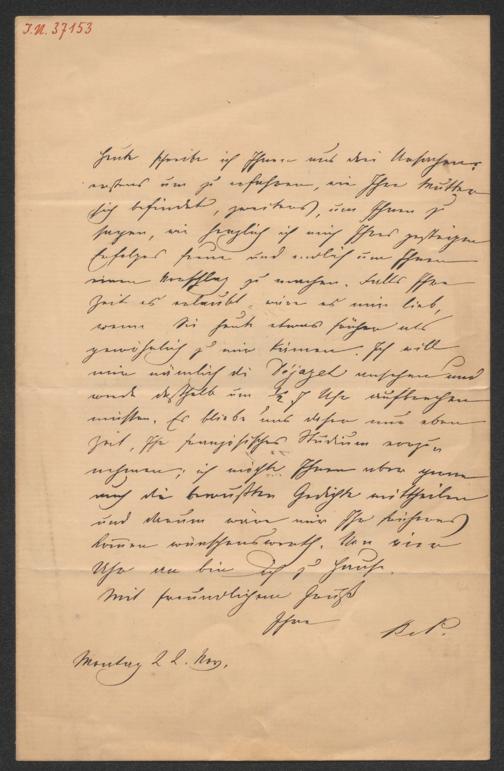 I.N. 37153
Heute schreibe ich Ihnen aus drei Ursachen:
erstens um zu erfahren, wie Ihre Mutter
sich befindet, zweitens, um Ihnen zu
sagen, wie herzlich ich mich Ihres gestrigen
Erfolges freue und endlich um Ihnen
einen Vorschlag zu machen. Falls Ihre
Zeit es erlaubt, wäre es mir lieb,
wenn Sie heute etwas früher als
gewöhnlich zu mir kämen. Ich will
mir nämlich die Déjazet ansehen und
werde deßhalb um ½ 7 Uhr aufbrechen
müssen. Es bliebe uns daher nur eben
Zeit, Ihr französisches Studium vorzu
nehmen; ich möchte Ihnen aber gerne
auch die bewußten Gedichte mittheilen
und darum wäre mir Ihr früheres
Kommen wünschenswerth. Von vier
Uhr an bin ich zu Hause.
Mit freundlichem Gruß
Ihre
Montag 22. Nov.